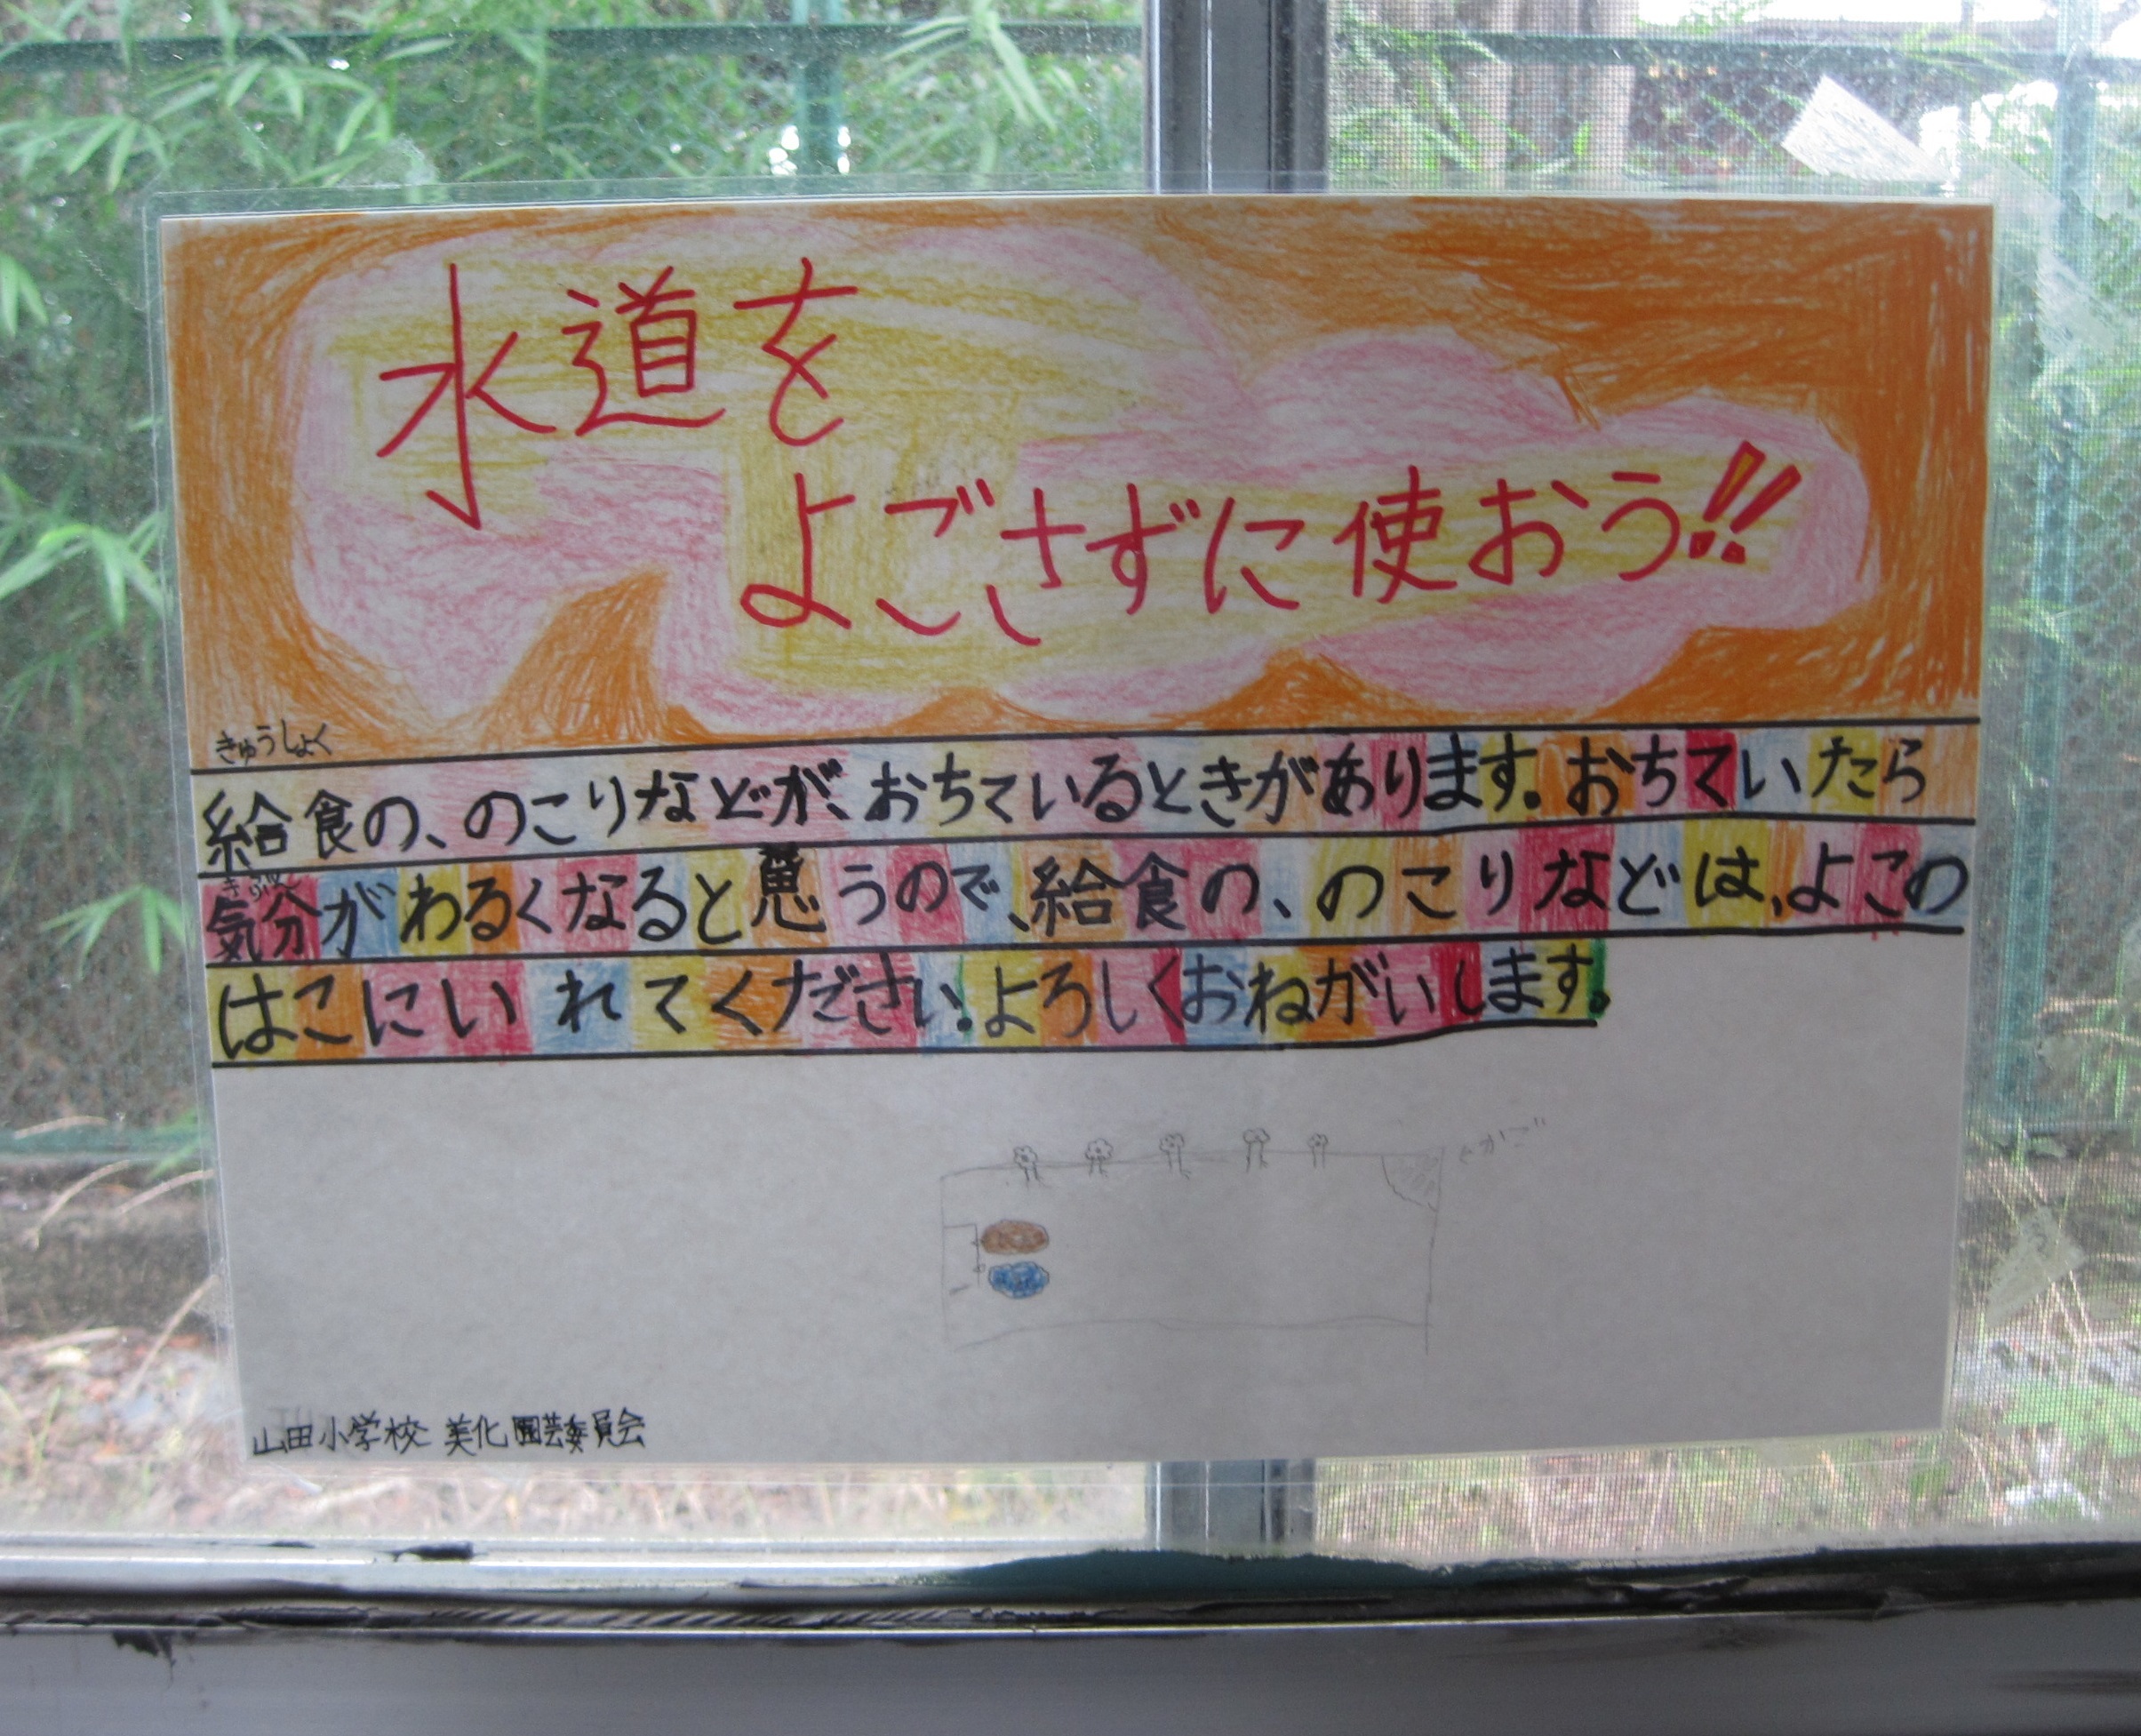 水道を
よごさずに使おう!!
きゅうしょく
給食の、のこりなどが、おちているときがあります。おちていたら
きぶん
気分がわるくなると思うので、給食の、のこりなどは、よこの
はこにいれてください。よろしくおねがいします。
山田小学校 美化園芸委員会